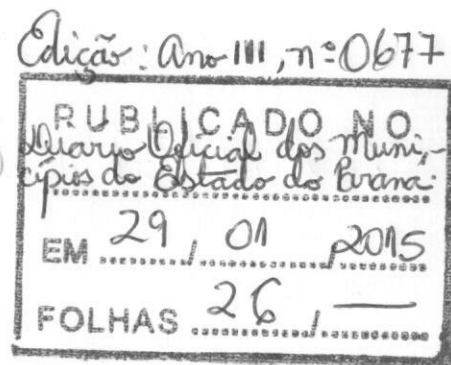 Edição: Ano III, nº 0677
PUBLICADO NO
Diário Oficial dos Muni-
cípios do Estado do Paraná.
EM 29, 01, 2015
FOLHAS 26, —